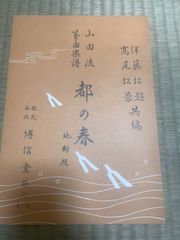 伊藤松超共編
髙尾松蓉
山田流
箏曲楽譜
都の春
地對照
株式
会社
博信堂